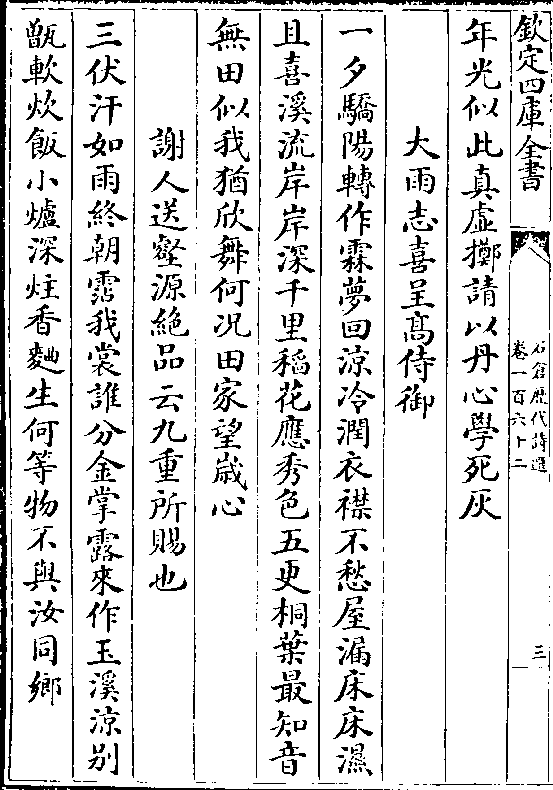 欽定四庫全書
石倉歷代詩選
卷一百六十二
三
年光似此真虛擲請以丹心學死灰
大雨志喜呈髙侍御
一夕驕陽轉作霖夢回凉冷潤衣襟不愁屋漏床床濕
且喜溪流岸岸深千里稻花應秀色五更桐葉最知音
無田似我猶欣舞何况田家望嵗心
謝人送壑源絶品云九重所賜也
三伏汗如雨終朝霑我裳誰分金掌露來作玉溪凉别
甑軟炊飯小爐深炷香麴生何等物不與汝同鄉